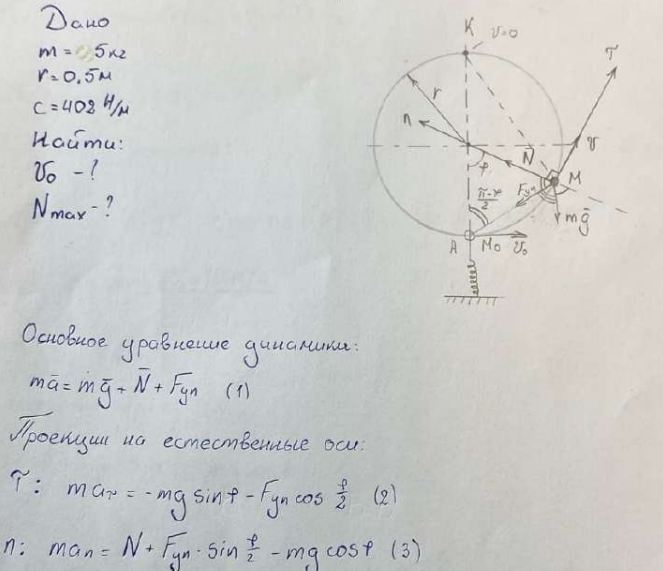 Дано
m = 0,5 кг
r = 0,5 м
c = 402 Н/м
Найти:
υ₀ - ?
Nmax - ?
K υ=0
τ
r
n
N̄
ῡ
φ
Fуп
M
mḡ
(π-φ)/2
A M₀ ῡ₀
Основное уравнение динамики:
mā = mḡ + N̄ + F̄уп (1)
Проекции на естественные оси:
τ: maτ = -mg sinφ - Fуп cos φ/2 (2)
n: man = N + Fуп · sin φ/2 - mg cosφ (3)